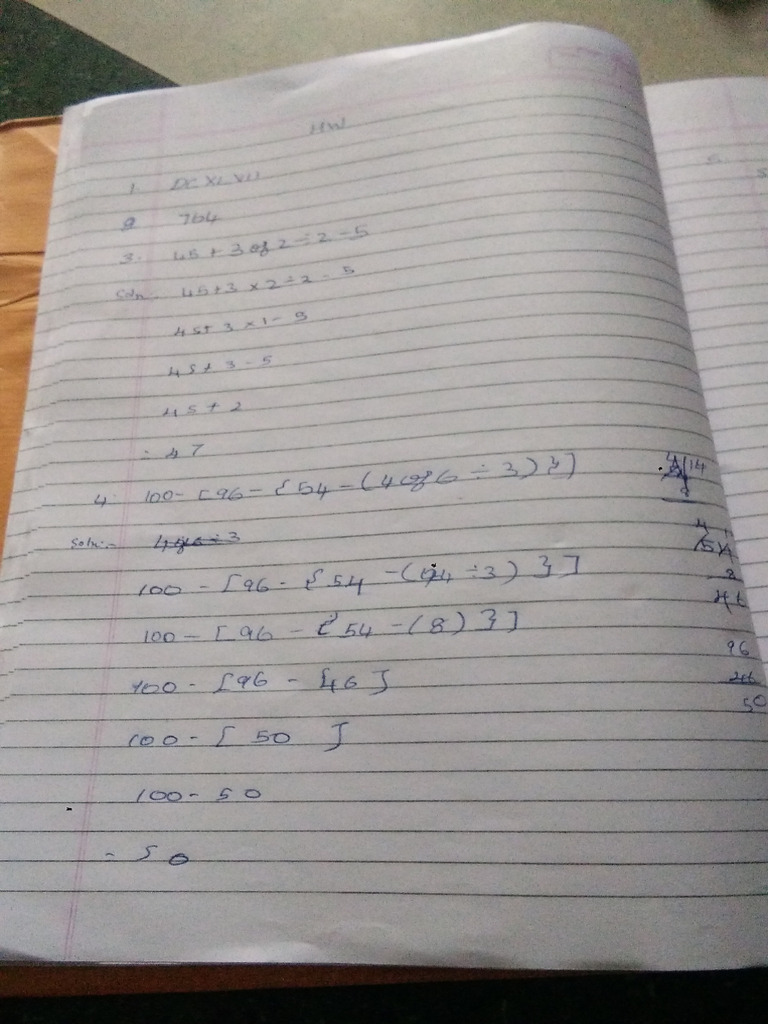 HW
1. DC XL VII
2 764
3. 45 + 3 of 2 ÷ 2 - 5
Soln. 45 + 3 × 2 ÷ 2 - 5
45 + 3 × 1 - 5
45 + 3 - 5
45 + 2
= 47
4. 100 - [96 - {54 - (4 of 6 ÷ 3) }]
Soln:-
100 - [96 - {54 - (24 ÷ 3) }]
100 - [96 - {54 - (8) }]
100 - [96 - [46]
100 - [ 50 ]
100 - 50
= 50
14
8
54
8
46
96
46
50